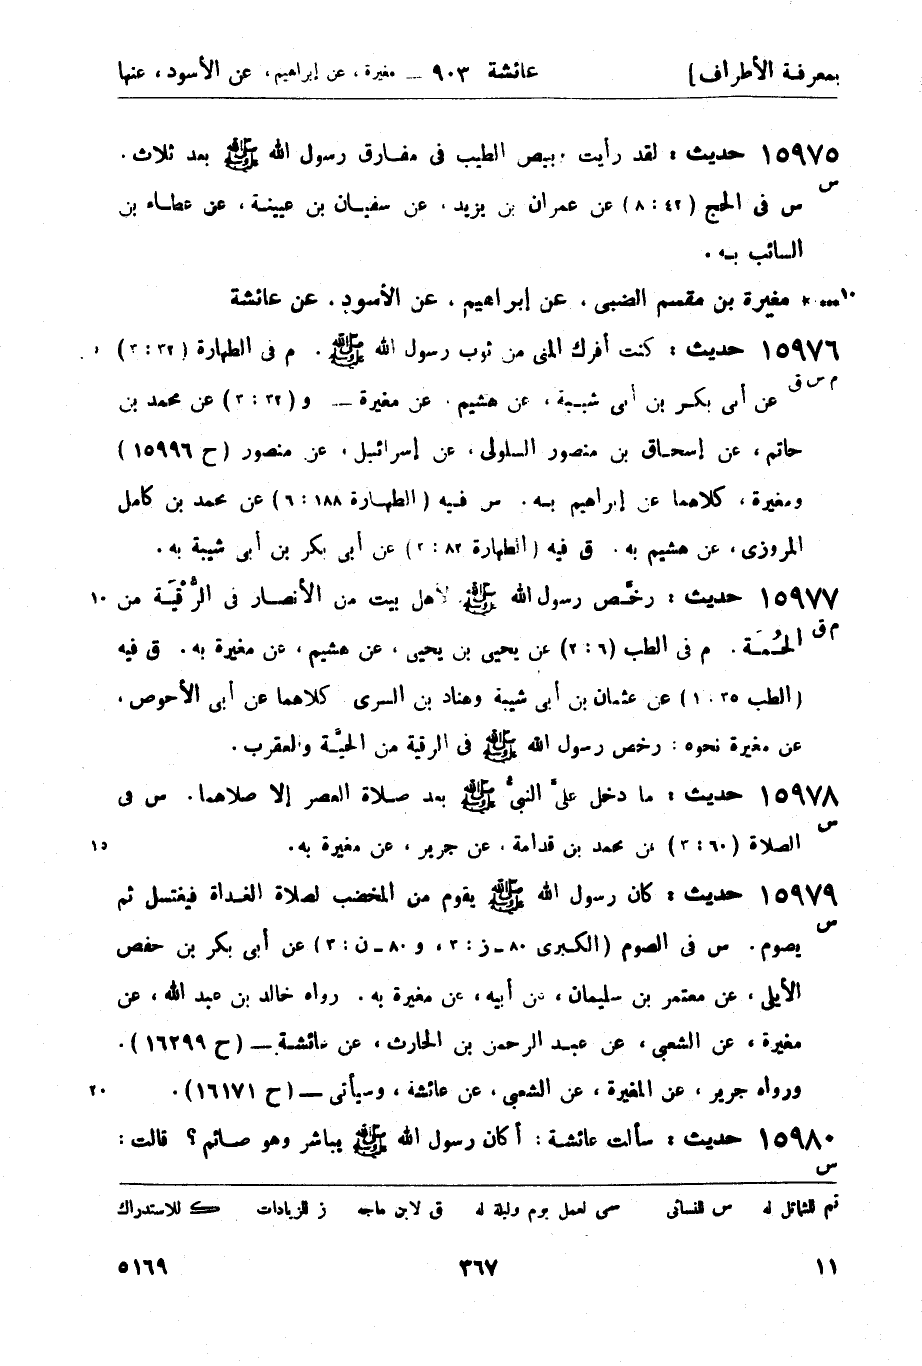 بمعرفة الأطراف] عائشة ٩٠٣ ــ مغيرة، عن إبراهيم، عن الأسود، عنها
١٥٩٧٥ حديث : لقد رأيت وبيص الطيب فى مفارق رسول الله ﷺ بعد ثلاث .
س
س فى الحج (٤٢ : ٨) عن عمران بن يزيد ، عن سفيان بن عيينة ، عن عطاء بن
السائب به .
١٠... * مغيرة بن مقسم الضبى ، عن إبراهيم ، عن الأسود ، عن عائشة
١٥٩٧٦ حديث : كنت أفرك المنى من ثوب رسول الله ﷺ . م فى الطهارة (٣٢ : ٣) ٥
م س ق
عن أبى بكر بن أبى شيبة ، عن هشيم ، عن مغيرة ــ و (٣٢ : ٣) عن محمد بن
حاتم ، عن إسحاق بن منصور السلولى ، عن إسرائيل ، عن منصور (ح ١٥٩٩٦)
ومغيرة ، كلاهما عن إبراهيم به . س فيه (الطهارة ١٨٨ : ٦) عن محمد بن كامل
المروزى ، عن هشيم به . ق فيه (الطهارة ٨٢ : ٣) عن أبى بكر بن أبى شيبة به .
١٥٩٧٧ حديث : رخّص رسول الله ﷺ لأهل بيت من الأنصار فى الرُّقْيَة من ١٠
م ق
الحُمَة . م فى الطب (٦ : ٢) عن يحيى بن يحيى ، عن هشيم ، عن مغيرة به . ق فيه
(الطب ٣٥ : ١) عن عثمان بن أبى شيبة وهناد بن السرى كلاهما عن أبى الأحوص ،
عن مغيرة نحوه : رخص رسول الله ﷺ فى الرقية من الحيَّة والعقرب .
١٥٩٧٨ حديث : ما دخل علىَّ النبىُّ ﷺ بعد صلاة العصر إلا صلاهما . س فى
س
الصلاة (٦٠ : ٣) عن محمد بن قدامة ، عن جرير ، عن مغيرة به . ١٥
١٥٩٧٩ حديث : كان رسول الله ﷺ يقوم من المخضب لصلاة الغداة فيغتسل ثم
س
يصوم . س فى الصوم (الكبرى ٨٠ ــ ز : ٢ ، و ٨٠ ــ ن : ٣) عن أبى بكر بن حفص
الأيلى ، عن معتمر بن سليمان ، عن أبيه ، عن مغيرة به . رواه خالد بن عبد الله ، عن
مغيرة ، عن الشعبى ، عن عبد الرحمن بن الحارث ، عن عائشة ــ (ح ١٦٢٩٩) .
ورواه جرير ، عن المغيرة ، عن الشعبى ، عن عائشة ، وسيأتى ــ (ح ١٦١٧١) . ٢٠
١٥٩٨٠ حديث : سألت عائشة : أكان رسول الله ﷺ يباشر وهو صائم ؟ قالت :
س
تم للشمائل له س للنسائى سى لعمل يوم وليلة له ق لابن ماجه ز للزيادات ك للاستدراك
١١ ٣٦٧ ٥١٦٩